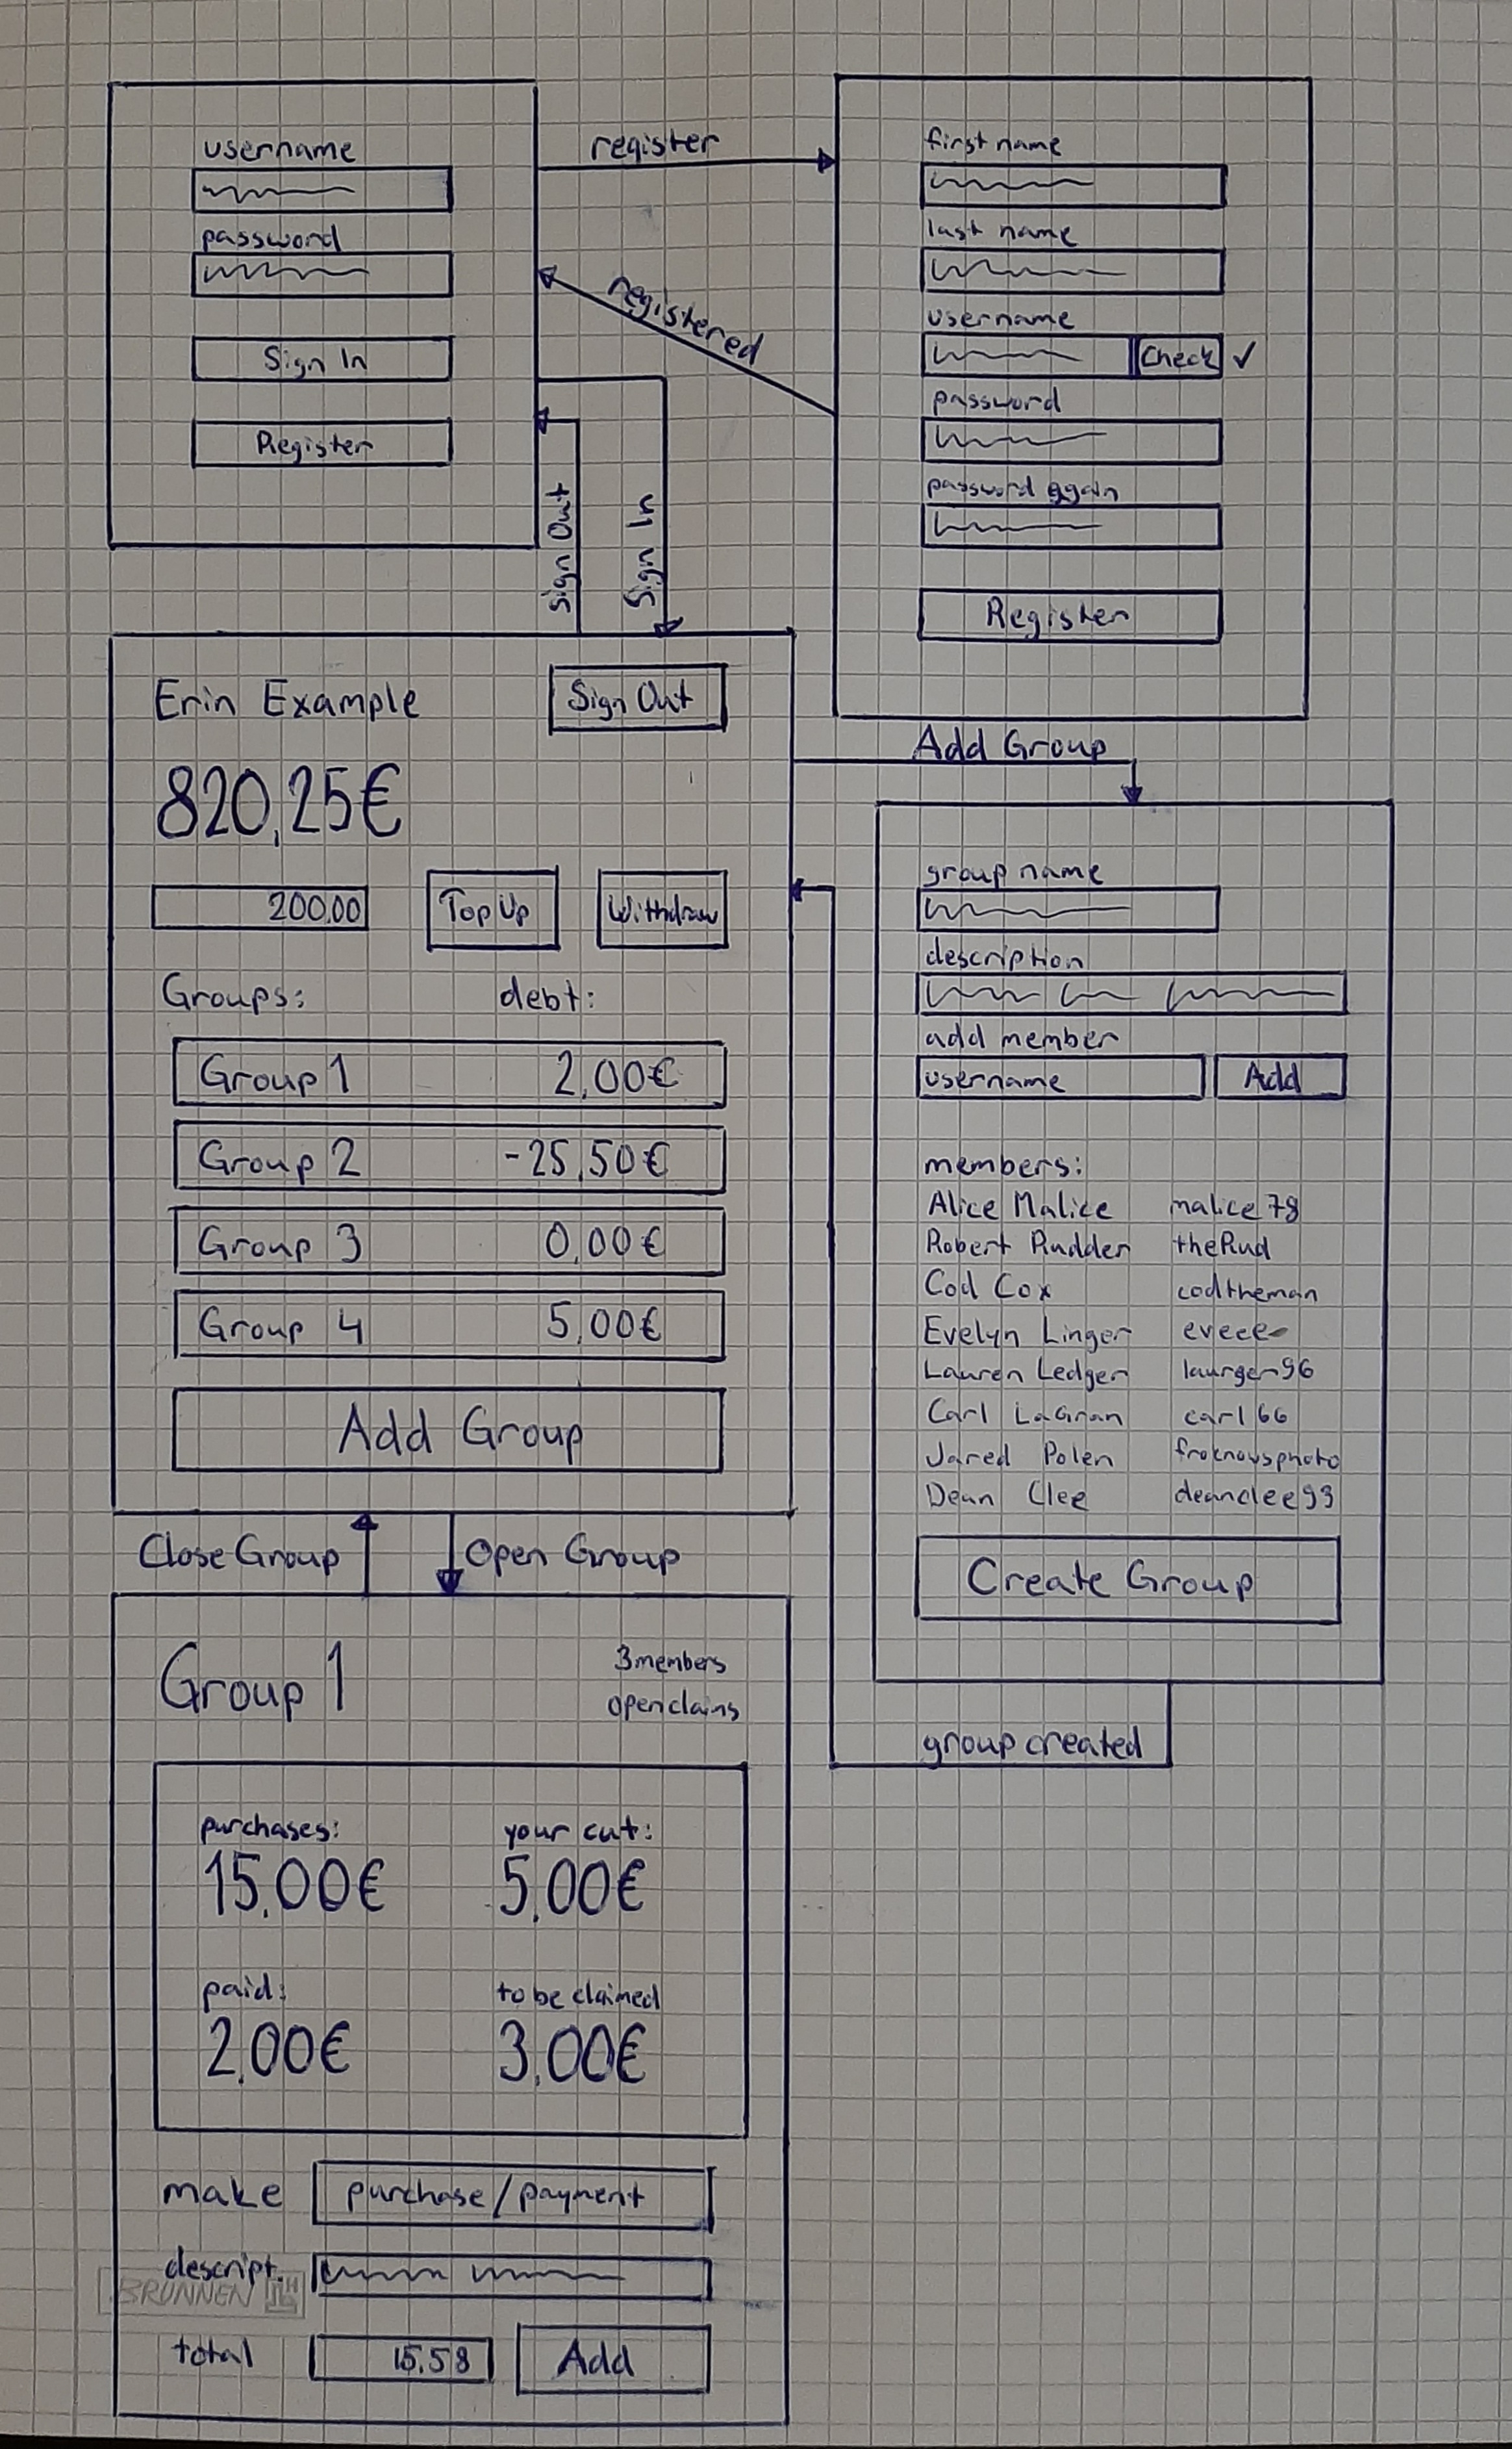 username
password
Sign In
Register
register
registered
Sign Out
Sign In
first name
last name
username
Check ✓
password
password again
Register
Erin Example
Sign Out
820,25€
200.00
Top Up
Withdraw
Groups: debt:
Group 1 2,00€
Group 2 -25,50€
Group 3 0,00€
Group 4 5,00€
Add Group
Add Group
group name
description
add member
username
Add
members:
Alice Malice malice78
Robert Rudder theRud
Cod Cox codtheman
Evelyn Linger eveee
Lauren Ledger laurger96
Carl LaGran carl66
Jared Polen froknowsphoto
Dean Clee deanclee93
Create Group
group created
Close Group
Open Group
Group 1
3 members
open claims
purchases: your cut:
15,00€ 5,00€
paid: to be claimed
2,00€ 3,00€
make purchase/payment
descript.
BRUNNEN
total 15,58 Add